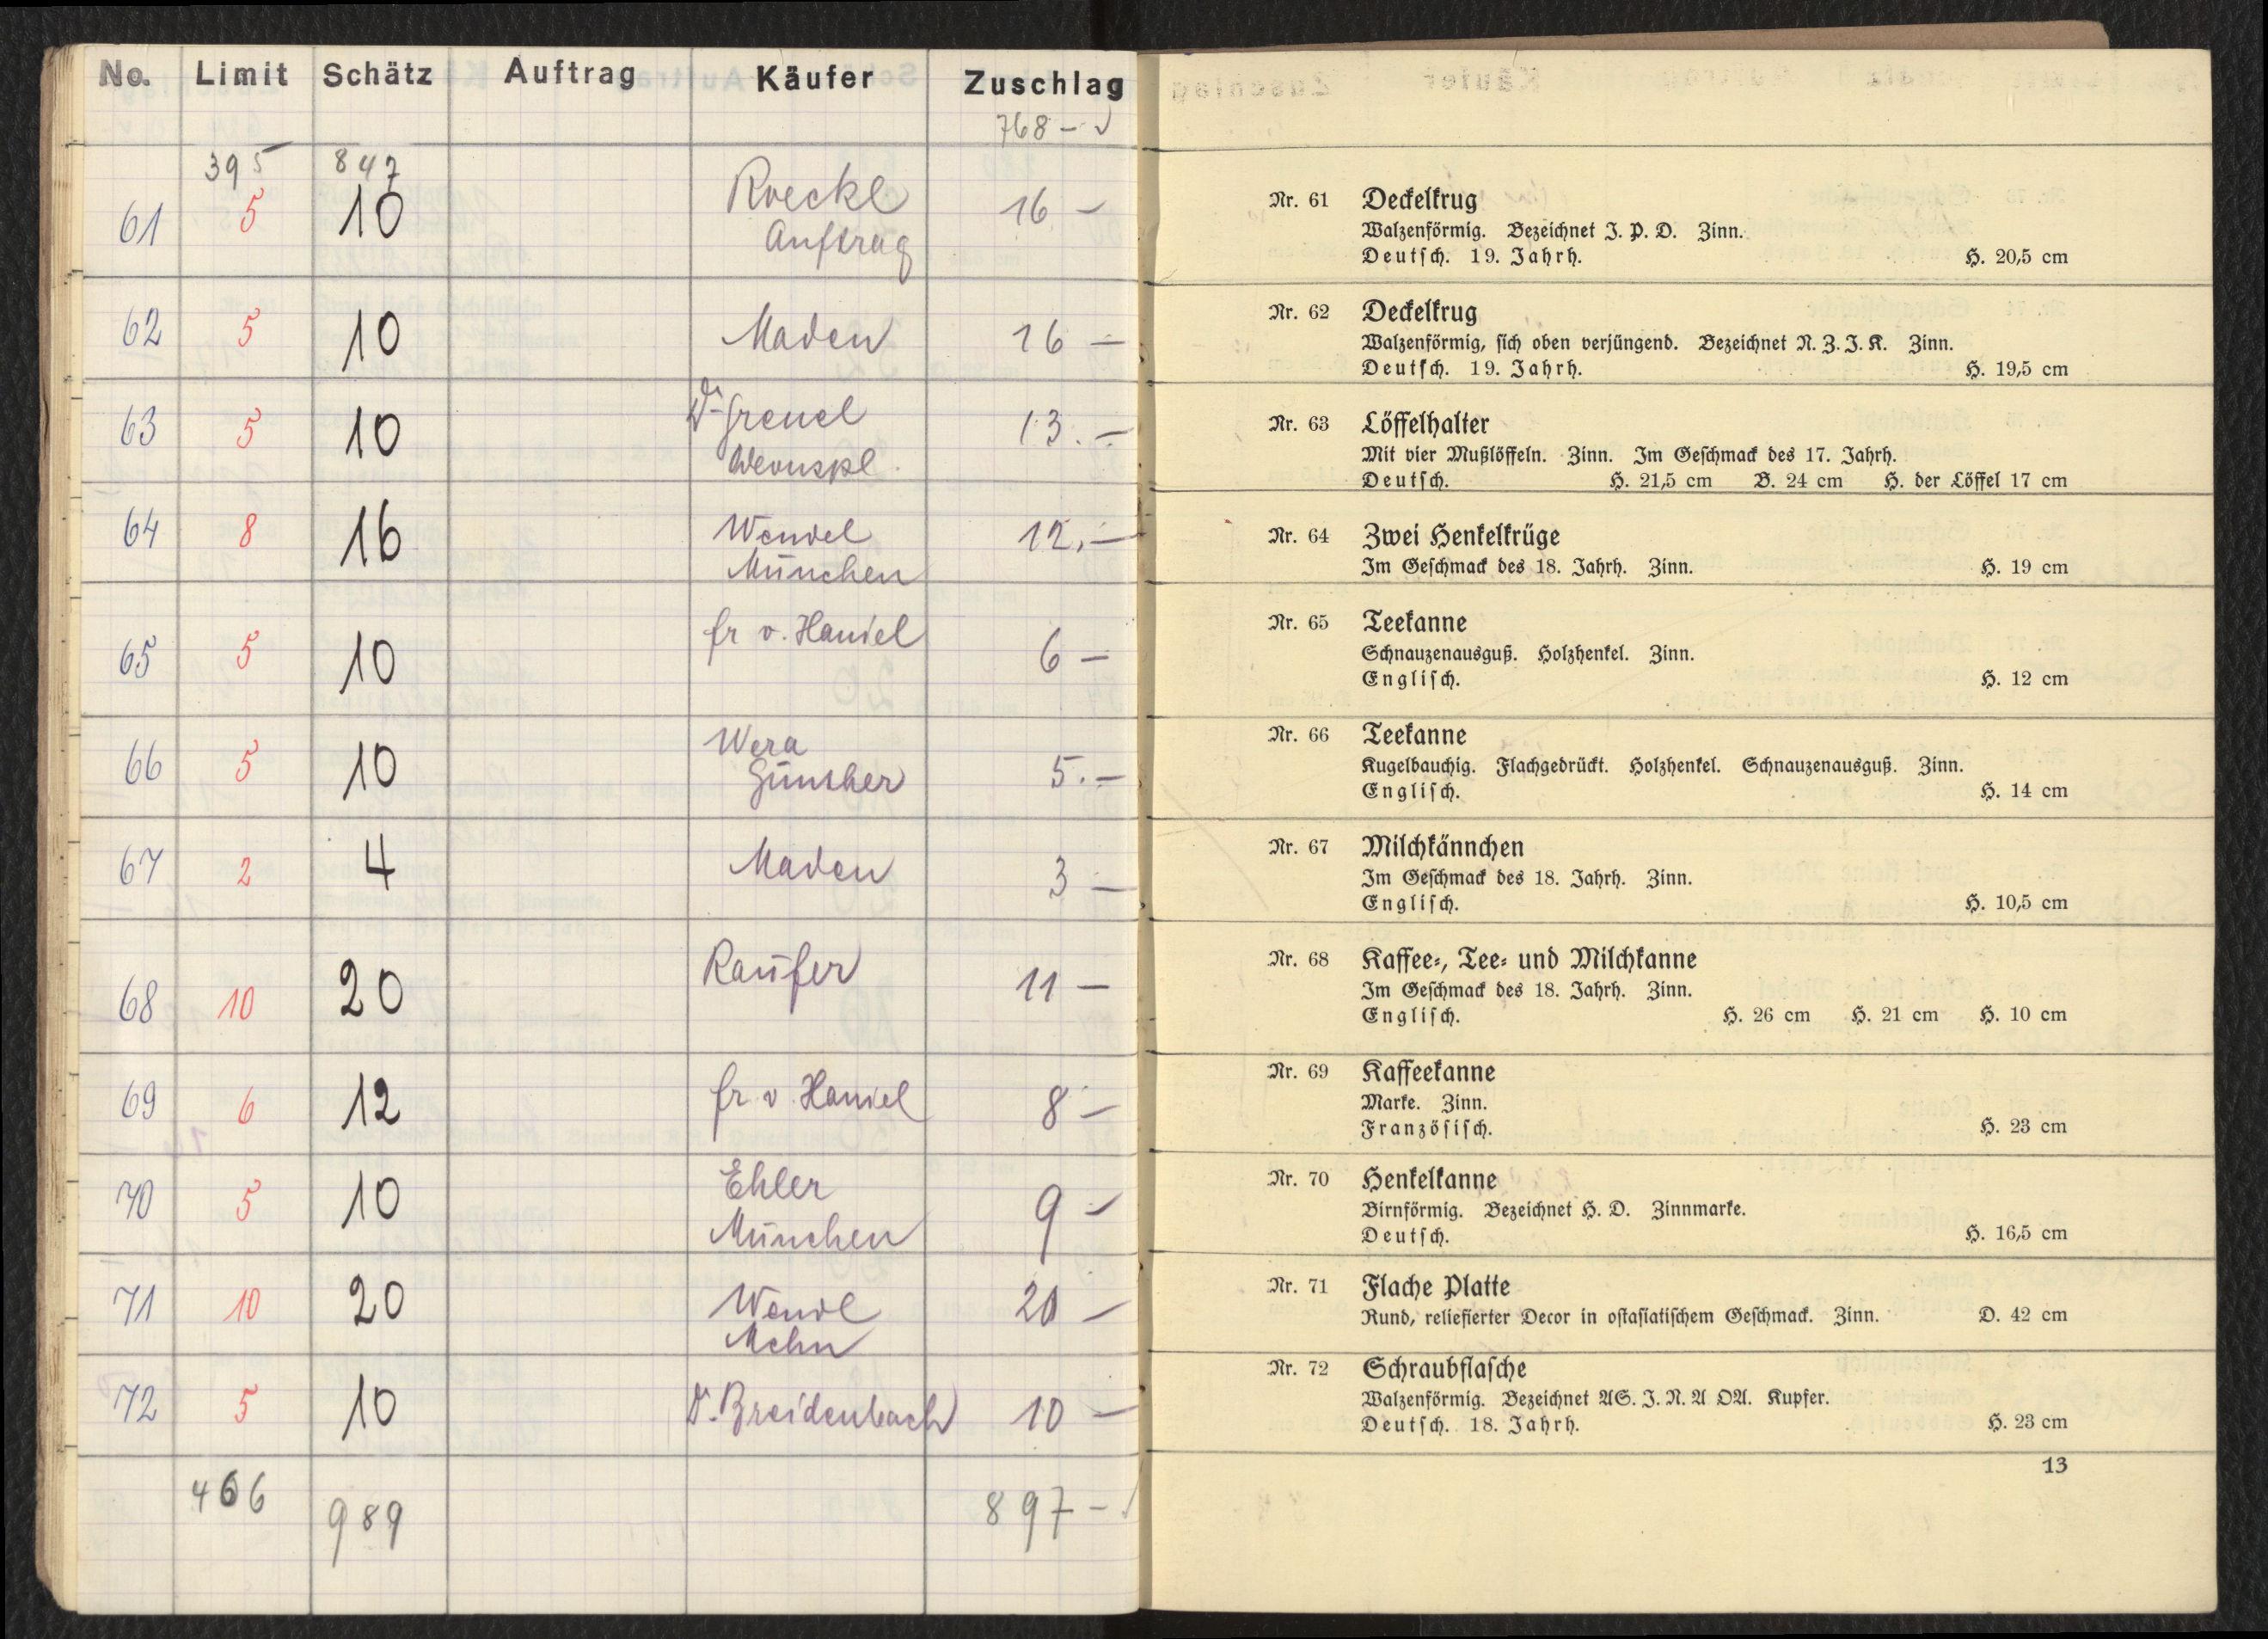 No. Limit Schätz Auftrag Käufer Zuschlag
768 –
395 847
61 5 10 Roeckl 16 –
Auftrag
62 5 10 Maden 16 –
63 5 10 Dr 13.–
64 8 16 Wendel 12.–
München
65 5 10 fr v. Haniel 6 –
66 5 10 Wera 5.–
Günther
67 2 4 Maden 3 –
68 10 20 Raufer 11 –
69 6 12 fr v. Haniel 8 –
70 5 10 Ehler 9 –
München
71 10 20 Wendl 20 –
Mchn
72 5 10 Dr. Breidenbach 10 –
466 989 897 –
Nr. 61 Deckelkrug
Walzenförmig. Bezeichnet J. P. D. Zinn.
Deutsch. 19. Jahrh. H. 20,5 cm
Nr. 62 Deckelkrug
Walzenförmig, sich oben verjüngend. Bezeichnet N. Z. J. K. Zinn.
Deutsch. 19. Jahrh. H. 19,5 cm
Nr. 63 Löffelhalter
Mit vier Mußlöffeln. Zinn. Im Geschmack des 17. Jahrh.
Deutsch. H. 21,5 cm B. 24 cm H. der Löffel 17 cm
Nr. 64 Zwei Henkelkrüge
Im Geschmack des 18. Jahrh. Zinn. H. 19 cm
Nr. 65 Teekanne
Schnauzenausguß. Holzhenkel. Zinn.
Englisch. H. 12 cm
Nr. 66 Teekanne
Kugelbauchig. Flachgedrückt. Holzhenkel. Schnauzenausguß. Zinn.
Englisch. H. 14 cm
Nr. 67 Milchkännchen
Im Geschmack des 18. Jahrh. Zinn.
Englisch. H. 10,5 cm
Nr. 68 Kaffee-, Tee- und Milchkanne
Im Geschmack des 18. Jahrh. Zinn.
Englisch. H. 26 cm H. 21 cm H. 10 cm
Nr. 69 Kaffeekanne
Marke. Zinn.
Französisch. H. 23 cm
Nr. 70 Henkelkanne
Birnförmig. Bezeichnet H. D. Zinnmarke.
Deutsch. H. 16,5 cm
Nr. 71 Flache Platte
Rund, reliefierter Decor in ostasiatischem Geschmack. Zinn. D. 42 cm
Nr. 72 Schraubflasche
Walzenförmig. Bezeichnet AS. J. N. A OA. Kupfer.
Deutsch. 18. Jahrh. H. 23 cm
13